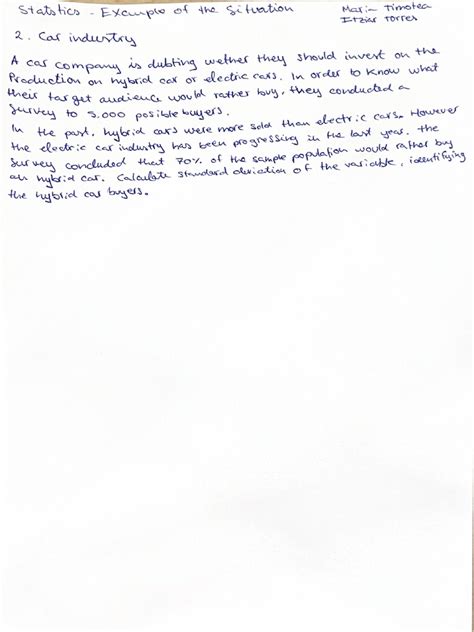 Statstics - Example of the Situation
Maria Timotea
Itziar Torres
2. Car industry
A car company is dubting wether they should invest on the
Production on hybrid car or electric cars. In order to know what
their target audience would rather buy, they conducted a
survey to 5.000 posible buyers.
In the past, hybrid cars were more sold than electric cars. However
the electric car industry has been progressing in the last year. The
survey concluded that 70% of the sample population would rather buy
an hybrid car. Calculate standard deviation of the variable, identifying
the hybrid car buyers.